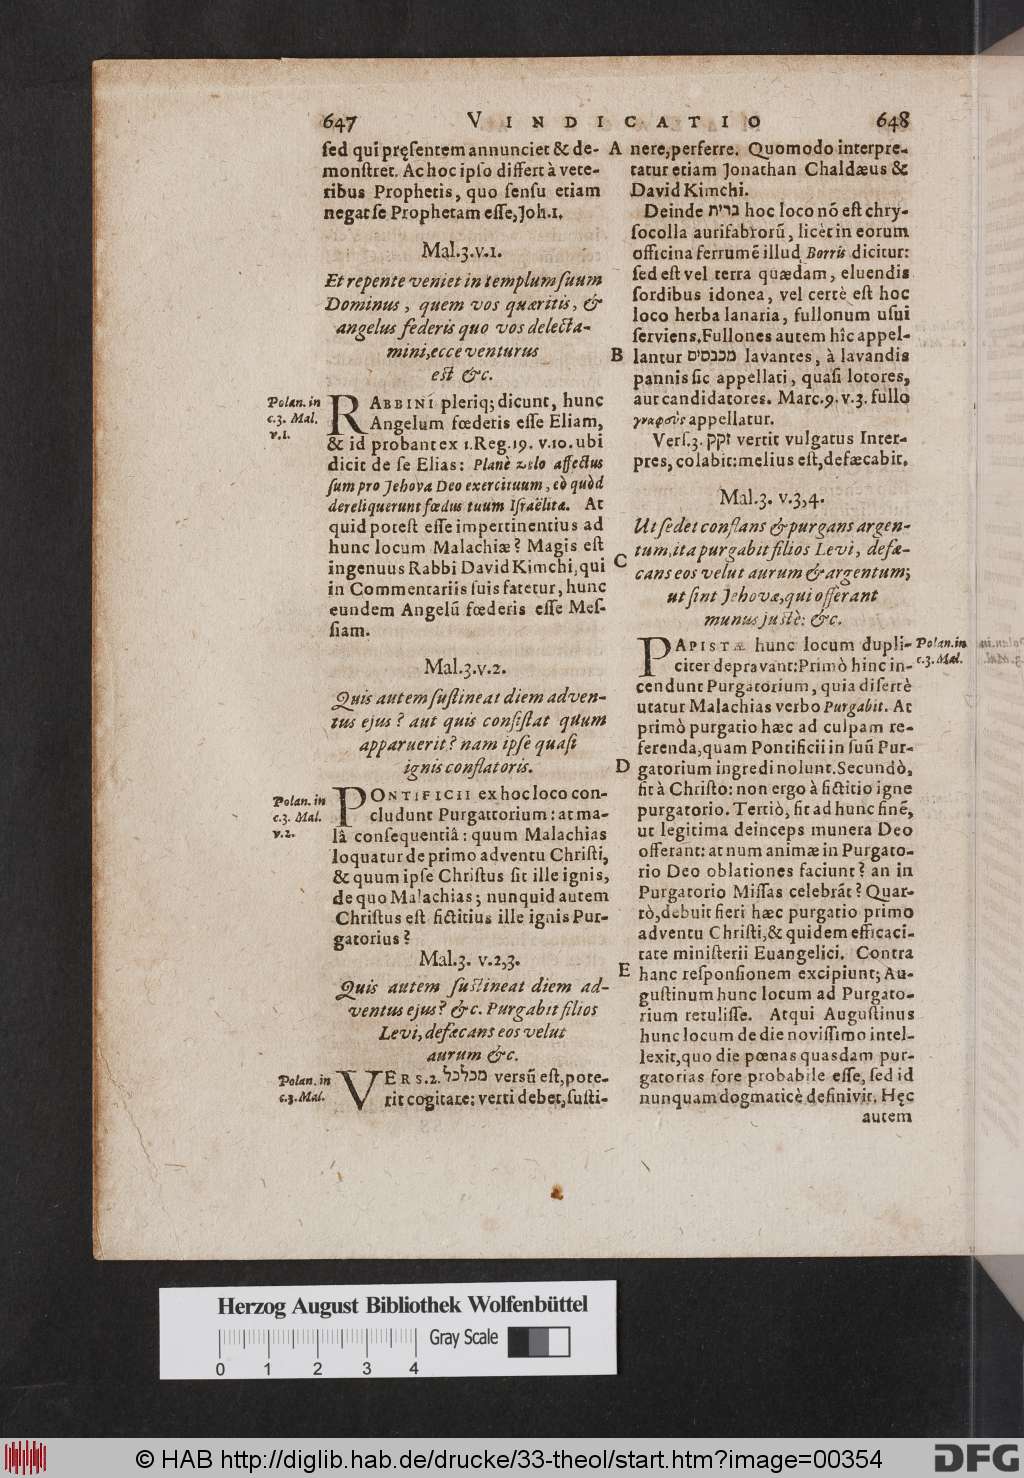 647
VINDICATIO
648
ſed qui pręſentem annunciet & de-
monſtret. Ac hoc ipſo differt à vete-
ribus Prophetis, quo ſenſu etiam
negat ſe Prophetam eſſe, Joh.1.
Mal.3.v.1.
Et repente veniet in templum ſuum
Dominus, quem vos quæritis, &
angelus federis quo vos delecta-
mini, ecce venturus
est &c.
Polan. in
c.3. Mal.
v.1.
RABBINI pleriq; dicunt, hunc
Angelum fœderis eſſe Eliam,
& id probant ex 1.Reg.19. v.10. ubi
dicit de ſe Elias: Planè zelo affectus
ſum pro Jehova Deo exercituum, eò quòd
dereliquerunt fœdus tuum Iſraëlitæ. At
quid poteſt eſſe impertinentius ad
hunc locum Malachiæ? Magis eſt
ingenuus Rabbi David Kimchi, qui
in Commentariis ſuis fatetur, hunc
eundem Angelũ fœderis eſſe Meſ-
ſiam.
Mal.3.v.2.
Quis autem ſuſtineat diem adven-
tus ejus? aut quis conſiſtat quum
apparuerit? nam ipſe quaſi
ignis conflatoris.
Polan. in
c.3. Mal.
v.2.
PONTIFICII ex hoc loco con-
cludunt Purgattorium: at ma-
lâ conſequentiâ: quum Malachias
loquatur de primo adventu Chriſti,
& quum ipſe Chriſtus ſit ille ignis,
de quo Malachias; nunquid autem
Chriſtus eſt fictitius ille ignis Pur-
gatorius?
Mal.3. v.2,3.
Quis autem ſustineat diem ad-
ventus ejus? &c. Purgabit filios
Levi, defæcans eos velut
aurum &c.
Polan. in
c.3. Mal.
VERS.2. מכלכל versũ eſt, pote-
rit cogitare: verti debet, ſuſti-
A
nere, perferre. Quomodo interpre-
tatur etiam Jonathan Chaldæus &
David Kimchi.
Deinde ברית hoc loco nõ eſt chry-
ſocolla aurifabrorũ, licèt in eorum
officina ferrumẽ illud Borris dicitur:
ſed eſt vel terra quædam, eluendis
ſordibus idonea, vel certè eſt hoc
loco herba lanaria, fullonum uſui
ſerviens. Fullones autem hîc appel-
B
lantur מכבסים lavantes, à lavandis
pannis ſic appellati, quaſi lotores,
aut candidatores. Marc.9. v.3. fullo
γναφεὺς appellatur.
Verſ.3. זקק vertit vulgatus Inter-
pres, colabit: melius eſt, defæcabit.
Mal.3. v.3,4.
Ut ſedet conflans & purgans argen-
tum, ita purgabit filios Levi, defæ-
C
cans eos velut aurum & argentum;
ut ſint Jehovæ, qui offerant
munus juſtè: &c.
PAPISTÆ hunc locum dupli-
citer depravant: Primò hinc in-
Polan. in
c.3. Mal.
cendunt Purgatorium, quia diſertè
utatur Malachias verbo Purgabit. At
primò purgatio hæc ad culpam re-
ferenda, quam Pontificii in ſuũ Pur-
D
gatorium ingredi nolunt. Secundò,
fit à Chriſto: non ergo à fictitio igne
purgatorio. Tertiò, fit ad hunc finẽ,
ut legitima deinceps munera Deo
offerant: at num animæ in Purgato-
rio Deo oblationes faciunt? an in
Purgatorio Miſſas celebrãt? Quar-
tò, debuit fieri hæc purgatio primo
adventu Chriſti, & quidem efficaci-
tate miniſterii Euangelici. Contra
E
hanc reſponſionem excipiunt; Au-
guſtinum hunc locum ad Purgato-
rium retuliſſe. Atqui Auguſtinus
hunc locum de die noviſſimo intel-
lexit, quo die pœnas quasdam pur-
gatorias fore probabile eſſe, ſed id
nunquam dogmaticè definivit. Hęc
autem
Herzog August Bibliothek Wolfenbüttel
Gray Scale
0 1 2 3 4
© HAB http://diglib.hab.de/drucke/33-theol/start.htm?image=00354
DFG